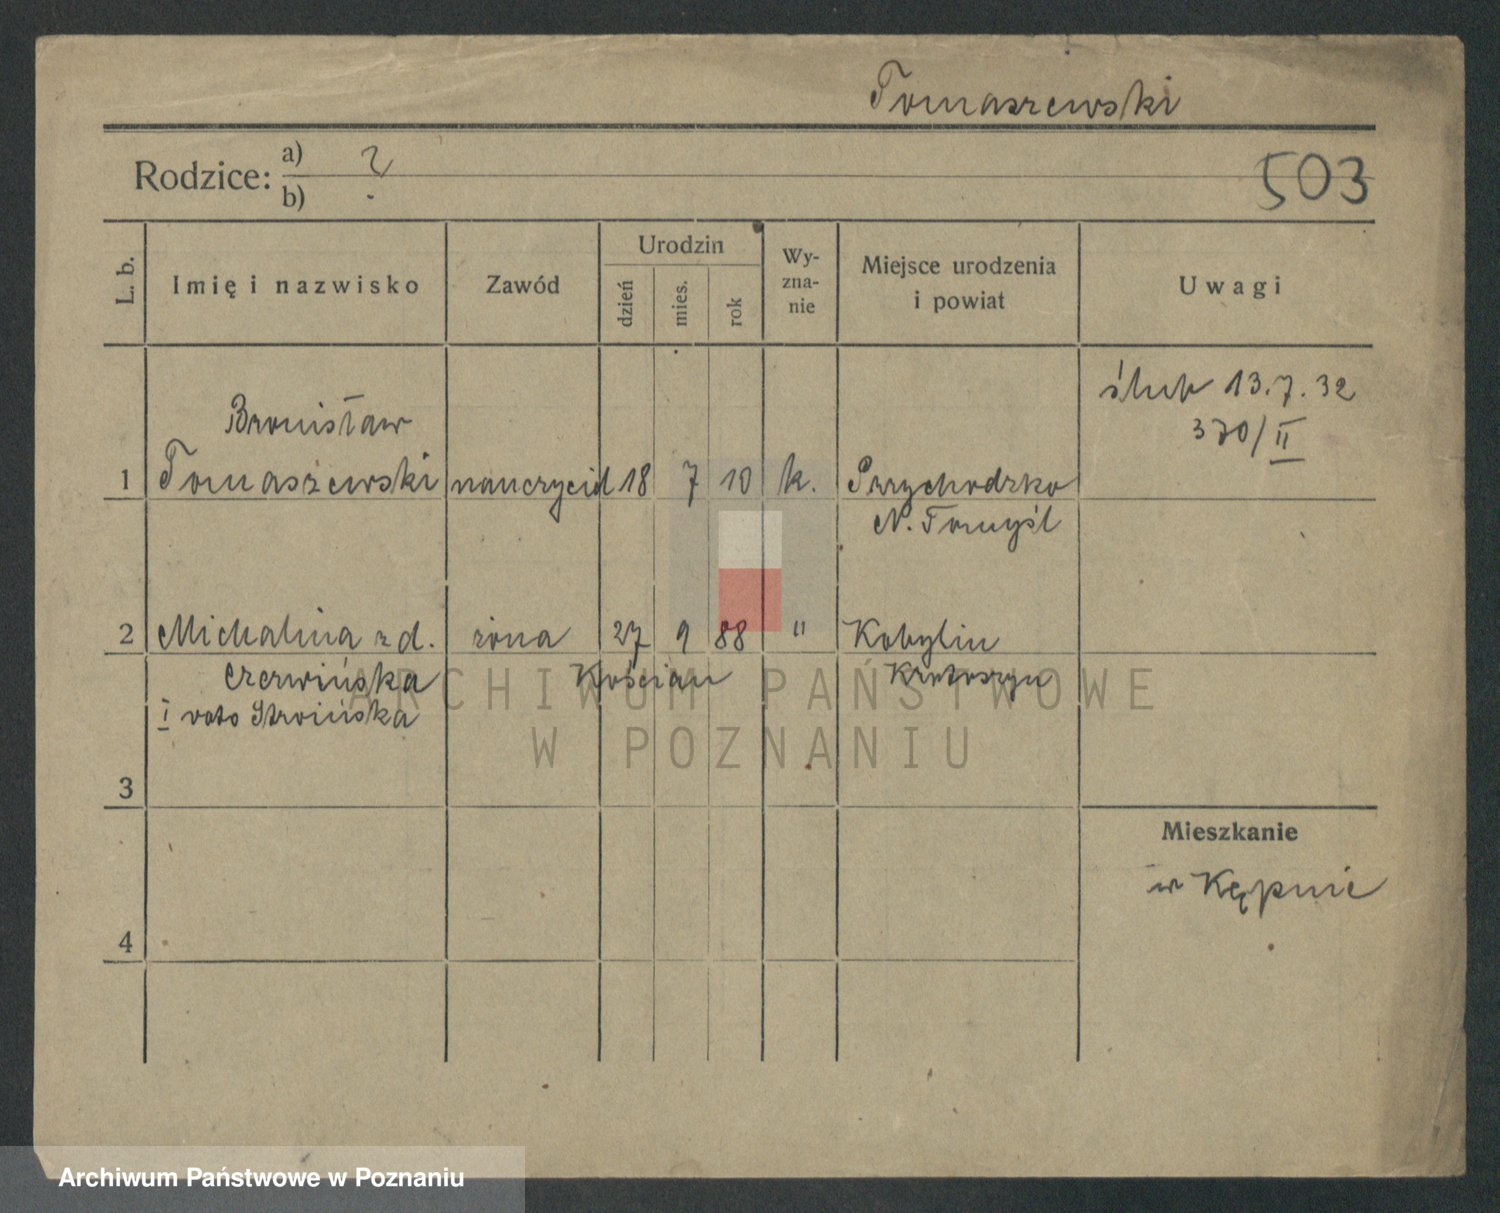 Tomaszewski
Rodzice: a) ?
b)
503
L. b.
Imię i nazwisko
Zawód
Urodzin
dzień
mies.
rok
Wy-
zna-
nie
Miejsce urodzenia
i powiat
Uwagi
ślub 13.7.32
370/II
Bronisław
1 Tomaszewski nauczyciel 18 7 10 k. Przychodzko
N. Tomyśl
2 Michalina zd. żona 27 9 88 " Kobylin
Czerwińska Kościan Krotoszyn
I voto Stroińska
ARCHIWUM PAŃSTWOWE
W POZNANIU
3
Mieszkanie
w Kępnie
4
Archiwum Państwowe w Poznaniu